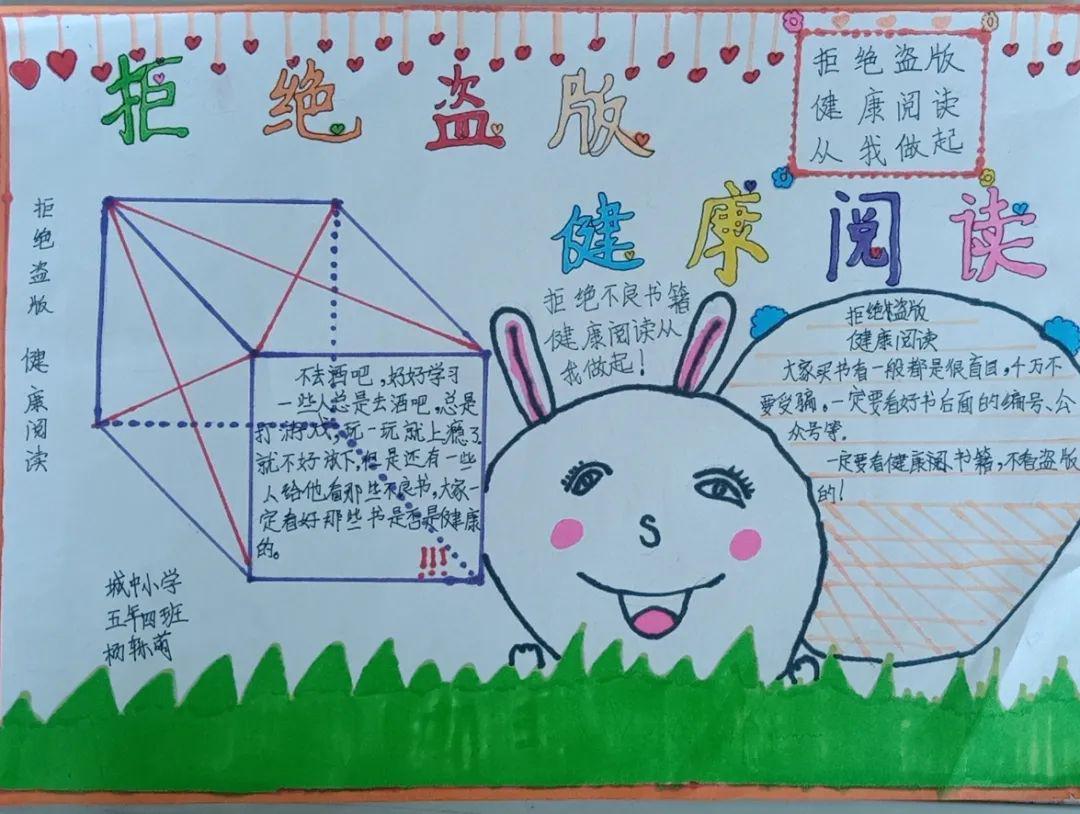 拒绝盗版
健康阅读
拒绝盗版
健康阅读
从我做起
拒绝盗版 健康阅读
拒绝不良书籍
健康阅读从
我做起!
不去酒吧,好好学习
一些人总是去酒吧,总是
打游戏,玩一玩就上瘾了
就不好放下,但是还有一些
人给他看那些不良书,大家一
定看好那些书是否是健康
的。
!!!
拒绝盗版
健康阅读
大家买书看一般都是很盲目,千万不
要受骗。一定要看好书后面的编号、公
众号等。
一定要看健康阅书籍,不看盗版
的!
城中小学
五年四班
杨轹萌